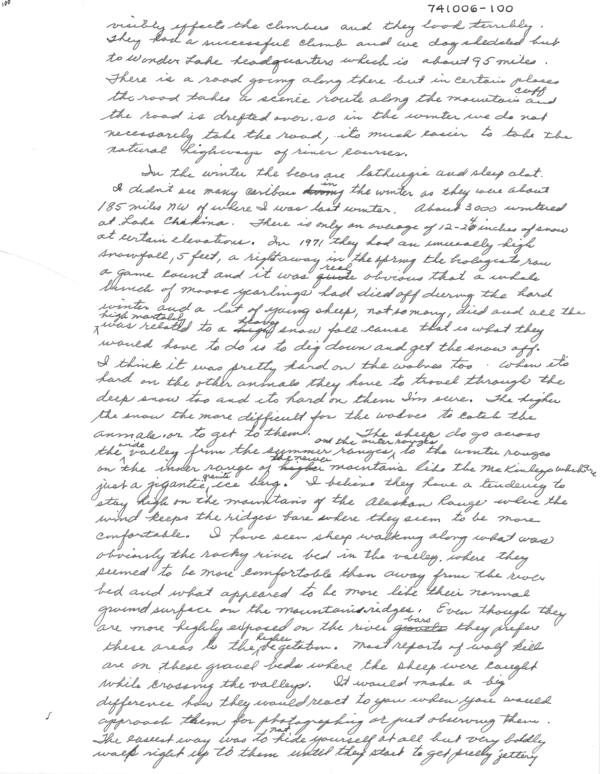 741006-100
visibly effects the climbers and they look terribly.
They had a successful climb and we dog sledded back
to Wonder Lake headquarters which is about 95 miles.
There is a road going along there but in certain places
the road takes a scenic route along the mountain cliff and
the road is drifted over. so in the winter we do not
necessarily take the road, its much easier to take the
natural highways of river courses.
In the winter the bears are lathurgic and sleep alot.
I didn't see many caribou in the winter as they were about
185 miles NW of where I was last winter. About 3000 wintered
at Lake Chakina. There is only an average of 12-20 inches of snow
at certain elevations. In 1971 they had an unusually high
snowfall, 5 feet, a right away in the spring the biologists ran
a game count and it was real obvious that a whole
bunch of moose yearlings had died off during the hard
winter and a lot of young sheep, not so many, died and all the
high mortality was related to a heavy snow fall cause that is what they
would have to do is to dig down and get the snow off.
I think it was pretty hard on the wolves too. When it's
hard on the other animals they have to travel through the
deep snow too and its hard on them I'm sure. The higher
the snow the more difficult for the wolves to catch the
animals, or to get to them. The sheep do go across
the wide valley from the summer ranges and the outer ranges, to the winter ranges
on the inner range of the newer mountains like the McKinley which is
just a gigantic granite ice berg. I believe they have a tendency to
stay high on the mountains of the Alaskan Range where the
wind keeps the ridges bare where they seem to be more
comfortable. I have seen sheep walking along what was
obviously the rocky river bed in the valley, where they
seemed to be more comfortable than away from the river
bed and what appeared to be more like their normal
ground surface on the mountains ridges. Even though they
are more highly exposed on the river bars they prefer
these areas to the higher vegetation. Most reports of wolf kill
are on these gravel beds where the sheep were caught
while crossing the valleys. It would make a big
difference how they would react to you when you would
approach them for photographing or just observing them.
The easiest way was to not hide yourself at all but very boldly
walk right up to them until they start to get pretty jettery